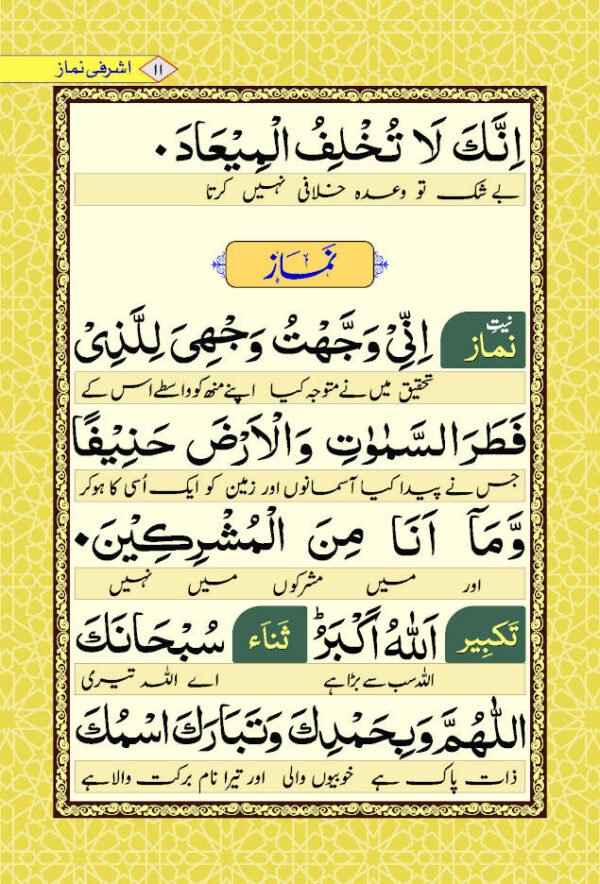 اشرفی نماز ۱۱
اِنَّكَ لَا تُخْلِفُ الْمِيْعَادَ۰
بے شک تو وعدہ خلافی نہیں کرتا
نَمَاز
نیتِ نماز اِنِّیْ وَجَّهْتُ وَجْهِیَ لِلَّذِیْ
تحقیق میں نے متوجہ کیا اپنے منھ کو واسطے اس کے
فَطَرَ السَّمٰوٰتِ وَالْاَرْضَ حَنِيْفًا
جس نے پیدا کیا آسمانوں اور زمین کو ایک اُسی کا ہو کر
وَّمَآ اَنَا مِنَ الْمُشْرِكِيْنَ۰
اور میں مشرکوں میں نہیں
تکبِیر اَللّٰهُ اَكْبَرُؕ ثَنَاء سُبْحَانَكَ
اللہ سب سے بڑا ہے اے اللہ تیری
اللّٰهُمَّ وَبِحَمْدِكَ وَتَبَارَكَ اسْمُكَ
ذات پاک ہے خوبیوں والی اور تیرا نام برکت والا ہے